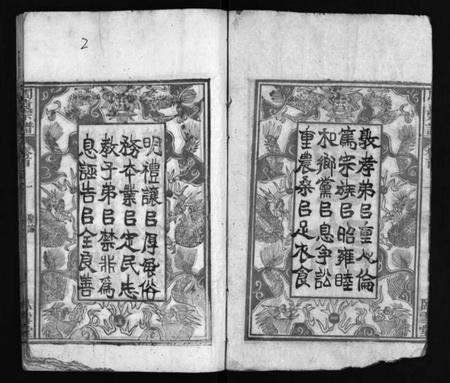 敦孝弟㠯重人倫
篤宗族㠯昭雍睦
和鄉黨㠯息爭訟
重農桑㠯足衣食
明禮讓㠯厚風俗
務本業㠯定民志
教子弟㠯禁非為
息誣告㠯全良善
2